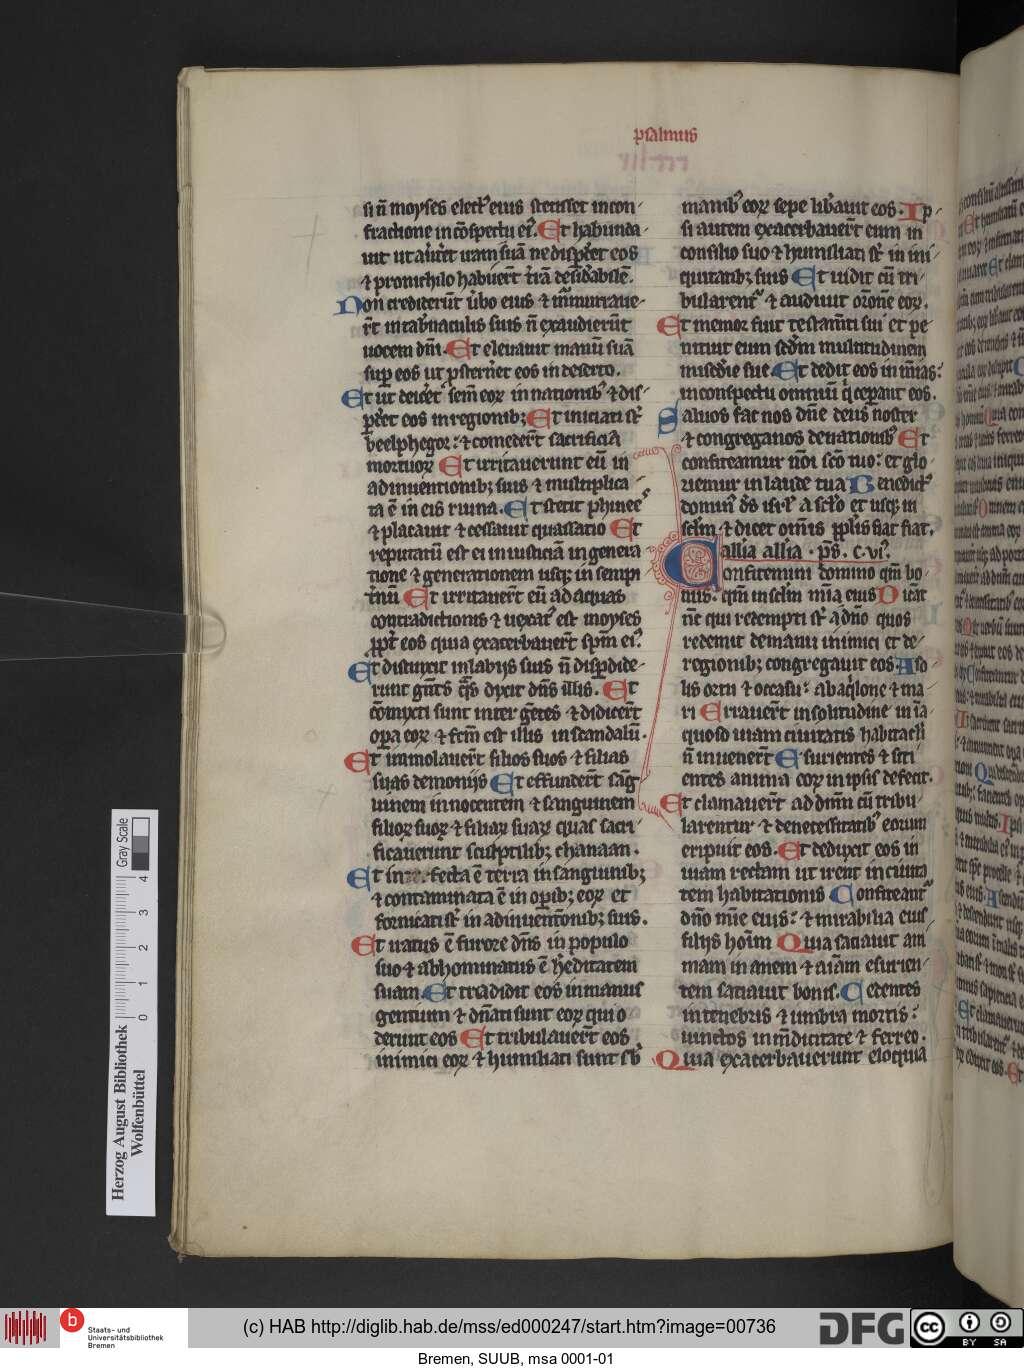 psalmus
si n̄ moyses elect᾽ eius stetisset in con
fractione in cōspectu ei᾽. Et habunda
⁊ pro nichilo habuer̄t
Non crediderūt
r̄t in tab̾naculis suis n̄ exaudierūt
uocem dn̄i. Et eleuauit manū suā
sup eos ut pstern̾et eos in deserto.
Et
p̾det eos in regionib; Et iniciati st̄
beelphegor: ⁊ comeder̄t sacrificia
mortuoꝝ Et irritauerunt eū in
adinuentionib; suis ⁊ multiplica
ta ē in eis ruina. Et stetit phinee᾽
⁊ placauit ⁊ cessauit quassatio Et
reputatū est ei in iusticiā in genera
tione ⁊ generationem usq; in sempi
t̾nū Et irritauer̄t eū ad aquas
contradictionis ⁊ uexat᾽ est moyses
ppt̾ eos quia exacerbauer̄t sp̄m ei᾽.
Et distinxit in labijs suis n̄ disp̾dide
runt gn̄tes q̄s dixit dn̄s illis. Et
cōmixti sunt inter gētes ⁊ didicer̄t
opa eoꝝ ⁊ scandalū.
Et immolauer̄t filios suos ⁊ filias
suas demonijs Et effunder̄t sāg
uinem innocentem ⁊ sanguinem
filioꝝ suoꝝ ⁊ filiaꝝ suaꝝ quas sacri
ficauerunt sculptilib; chanaan.
Et infecta ē terra in sanguinib;
⁊ contaminata ē in opib; eoꝝ et
fornicati st̄ in adinuent̄onib; suis.
Et iratus ē furore dn̄s in populo
suo ⁊ abhominatus ē h̾editatem
suam. Et tradidit eos in manus
gentium ⁊ dn̄ati sunt eoꝝ qui o
derunt eos Et tribulauer̄t eos
inimici eoꝝ ⁊ humiliati sunt sb̄
manib᾽ eoꝝ sepe lib̾auit eos. Ip
si autem exacerbauer̄t eum in
consilio suo ⁊ humiliati st̄ in ini
quitatib; suis Et uidit cū tri
bularent᾽ ⁊ audiuit or̄onē eoꝝ.
Et memor fuit testam̄ti sui et pe
nituit eum sc̄dm multitudinem
mis̄die sue. Et dedit eos in m̄ias:
in conspectu omniū q̾ cep̾ant eos.
Saluos fac nos dn̄e deus noster
⁊ congrega nos de nationib᾽ Et
confiteamur nōi sc̄o tuo: et glo
riemur in laude tua Benedict᾽
domin᾽ d̄s isr̄l a sc̄lo et usq; in
sc̄lm ⁊ dicet om̄is pplus fiat fiat.
allīa allīa. p̄s. c.vi᾽.
Confitemini domino qm̄ bo
nus: qm̄ in sc̄lm m̄ia eius Dicāt
nc̄ qui redempti st̄ a dn̄o quos
redemit de manu inimici et de
regionib; congregauit eos. A so
lis ortu ⁊ occasu: ab aq̾lone ⁊ ma
ri Errauer̄t in solitudine in īa
quoso uiam ciuitatis habitac̄li
n̄ inuener̄t Esurientes ⁊ siti
entes anima eoꝝ in ipsis defecit.
Et clamauer̄t ad dn̄m cū tribu
larentur ⁊ de necessitatib᾽ eorum
eripuit eos. Et deduxit eos in
uiam rectam ut irent in ciuita
tem habitationis Confiteant᾽
dn̄o m̄ie eius: ⁊ mirabilia eius
filijs hoīm Quia satiauit ani
mam inanem ⁊ aīam esurien
tem satiauit bonis. Sedentes
in tenebris ⁊ umbra mortis:
uinctos in m̄dicitate ⁊ ferro.
Quia exacerbauerunt eloquia
Gray Scale
0 1 2 3 4
Herzog August Bibliothek
Wolfenbüttel
b
Staats- und
Universitätsbibliothek
Bremen
(c) HAB http://diglib.hab.de/mss/ed000247/start.htm?image=00736
DFG
cc
BY SA
Bremen, SUUB, msa 0001-01